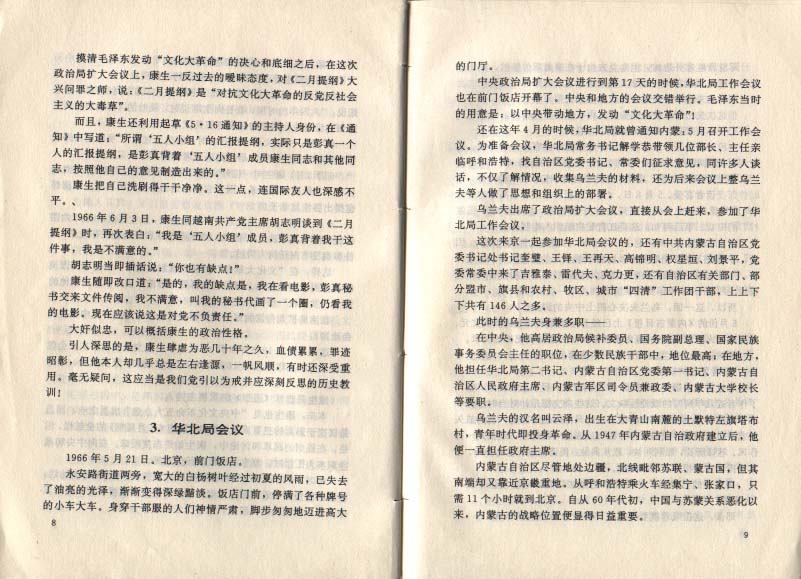 摸清毛泽东发动“文化大革命”的决心和底细之后，在这次
政治局扩大会议上，康生一反过去的暧昧态度，对《二月提纲》大
兴问罪之师，说：《二月提纲》是“对抗文化大革命的反党反社会
主义的大毒草”。
而且，康生还利用起草《5·16通知》的主持人身份，在《通
知》中写道：“所谓‘五人小组’的汇报提纲，实际只是彭真一个
人的汇报提纲，是彭真背着‘五人小组’成员康生同志和其他同
志，按照他自己的意见制造出来的。”
康生把自己洗刷得干干净净。这一点，连国际友人也深感不
平。、
1966年6月3日，康生同越南共产党主席胡志明谈到《二月
提纲》时，再次表白：“我是‘五人小组’成员，彭真背着我干这
件事，我是不满意的。”
胡志明当即插话说：“你也有缺点！”
康生随即改口道：“是的，我的缺点是，我在看电影，彭真秘
书交来文件传阅，我不满意，叫我的秘书代画了一个圈，仍看我
的电影。现在应该说这是对党不负责任。”
大奸似忠，可以概括康生的政治性格。
引人深思的是，康生肆虐为恶几十年之久，血债累累，罪迹
昭彰，但他本人却几乎总是左右逢源，一帆风顺，有时还深受重
用。毫无疑问，这应当是我们党引以为戒并应深刻反思的历史教
训！
3. 华北局会议
1966年5月21日。北京，前门饭店。
永安路街道两旁，宽大的白杨树叶经过初夏的风雨，已失去
了油亮的光泽，渐渐变得深绿黯淡。饭店门前，停满了各种牌号
的小车大车。身穿干部服的人们神情严肃，脚步匆匆地迈进高大
8
的门厅。
中央政治局扩大会议进行到第17天的时候，华北局工作会议
也在前门饭店开幕了。中央和地方的会议交错举行。毛泽东当时
的用意是：以中央带动地方，发动“文化大革命”！
还在这年4月的时候，华北局就曾通知内蒙：5月召开工作会
议。为准备会议，华北局常务书记解学恭带领几位部长、主任亲
临呼和浩特，找自治区党委书记、常委们征求意见，同许多人谈
话，不仅了解情况，收集乌兰夫的材料，还为后来会议上整乌兰
夫等人做了思想和组织上的部署。
乌兰夫出席了政治局扩大会议，直接从会上赶来，参加了华
北局工作会议。
这次来京一起参加华北局会议的，还有中共内蒙古自治区党
委书记处书记奎璧、王铎、王再天、高锦明、权星垣、刘景平，党
委常委中来了吉雅泰、雷代夫、克力更，还有自治区有关部门、部
分盟市、旗县和农村、牧区、城市“四清”工作团干部，上上下
下共有146人之多。
此时的乌兰夫身兼多职——
在中央，他高居政治局候补委员、国务院副总理、国家民族
事务委员会主任的职位，在少数民族干部中，地位最高；在地方，
他担任华北局第二书记、内蒙古自治区党委第一书记、内蒙古自
治区人民政府主席、内蒙古军区司令员兼政委、内蒙古大学校长
等要职。
乌兰夫的汉名叫云泽，出生在大青山南麓的土默特左旗塔布
村，青年时代即投身革命。从1947年内蒙古自治政府建立后，他
便一直担任政府主席。
内蒙古自治区尽管地处边疆，北线毗邻苏联、蒙古国，但其
南端却又靠近京畿重地。从呼和浩特乘火车经集宁、张家口，只
需11个小时就到北京。自从60年代初，中国与苏蒙关系恶化以
来，内蒙古的战略位置便显得日益重要。
9